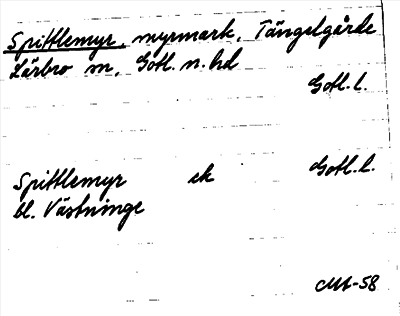 Spittlemyr, myrmark, Tängelgårde
Lärbro sn, Gotl. n. hd
Gotl. l.
Spittlemyr ek Gotl. l.
bl. Västninge